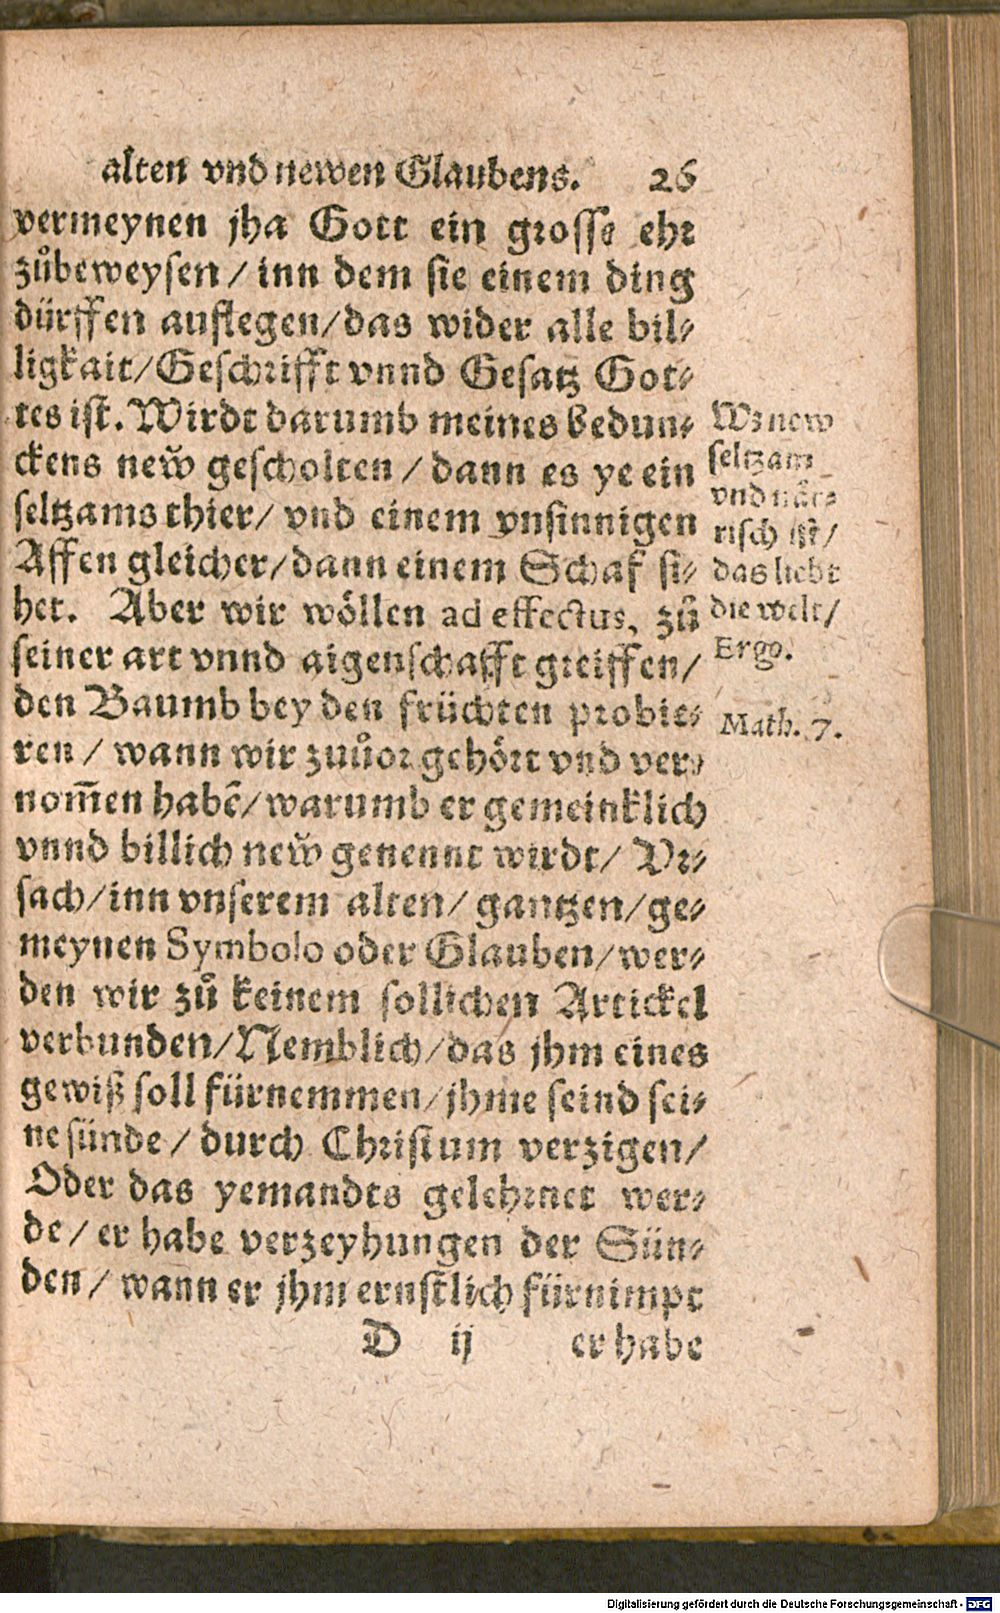 alten vnd newen Glaubens. 26
vermeynen jha Gott ein grosse ehr
zůbeweysen / inn dem sie einem ding
dürffen auflegen/das wider alle bil⸗
ligkait/Geschrifft vnnd Gesatz Got⸗
tes ist. Wirdt darumb meines bedun⸗
ckens new̆ gescholten / dann es ye ein
seltzams thier/ vnd einem vnsinnigen
Affen gleicher/dann einem Schaf si⸗
het. Aber wir wöllen ad effectus, zů
seiner art vnnd aigenschafft greiffen/
den Baumb bey den früchten probie⸗
ren / wann wir zuůor gehört vnd ver⸗
nom̃en habẽ/warumb er gemeinklich
vnnd billich new̆ genennt wirdt/ Vr⸗
sach/inn vnserem alten/ gantzen/ge⸗
meynen Symbolo oder Glauben/wer⸗
den wir zů keinem sollichen Artickel
verbunden/Nemblich/das jhm eines
gewiß soll fürnemmen/jhme seind sei⸗
ne sünde / durch Christum verzigen/
Oder das yemandts gelehrnet wer⸗
de / er habe verzeyhungen der Sün⸗
den / wann er jhm ernstlich fürnimpt
D ij er habe
Wz new
seltzam
vnd när⸗
risch ist/
das liebt
die welt/
Ergo.
Math. 7.
Digitalisierung gefördert durch die Deutsche Forschungsgemeinschaft - DFG